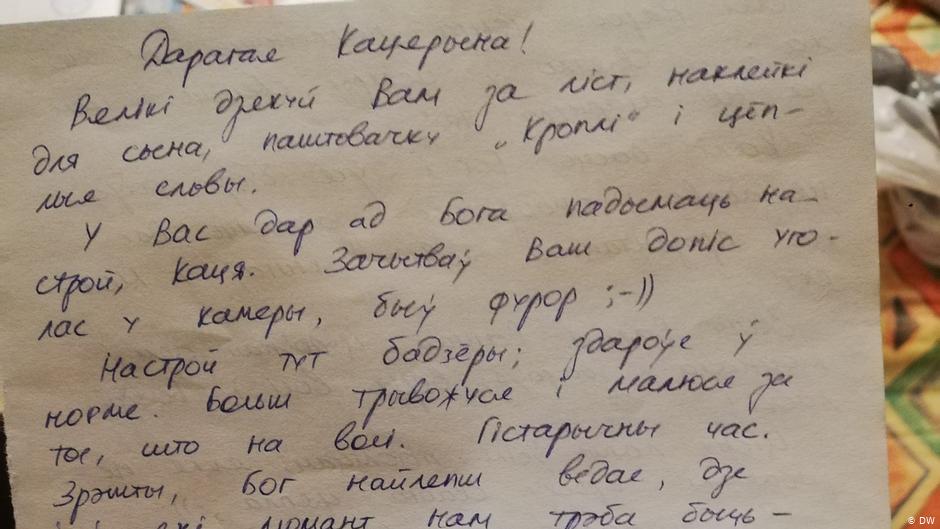 Дарагая Кацерына!
Велікі дзякуй Вам за ліст, наклейкі
для сына, паштовачку „Кроплі“ і цёп-
лыя словы.
У Вас дар ад Бога падымаць на-
строй, Каця. Зачытваў Ваш допіс уго-
лас у камеры, быў фурор ;-))
Настрой тут бадзёры; здароўе ў
норме. Больш трывожуся і малюся за
тое, што на волі. Гістарычны час.
Зрэшты, Бог найлепш ведае, дзе
і ў які момант нам трэба быць –
© DW